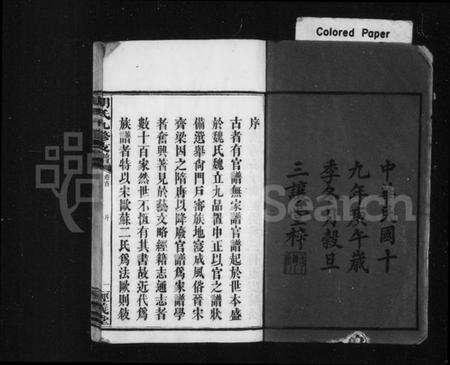 Colored Paper
中華民國十
九年庚午歲
季冬月穀旦
三讓堂梓
序
古者有官譜無家譜官譜起於世本盛
於魏氏魏立九品置中正以官之譜狀
備選舉而門戶審族地寖成風俗晉宋
齊梁因之隋唐以降廢官譜爲家譜學
者奮興著見於藝文略經籍志通志者
數十百家然世不恆有其書故近代爲
族譜者特以宋歐蘇二氏爲法歐則敍
胡氏九修支譜
序
Search